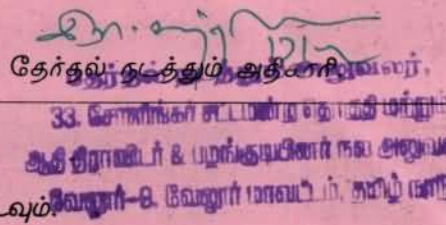 தேர்தல் நடத்தும் அதிகாரி
அலுவலர்,
33. சோளிங்கர் சட்டமன்ற தொகுதி மற்றும்
ஆதி திராவிடர் & பழங்குடியினர் நல
வேலூர்-9. வேலூர் மாவட்டம், தமிழ்
வும்.